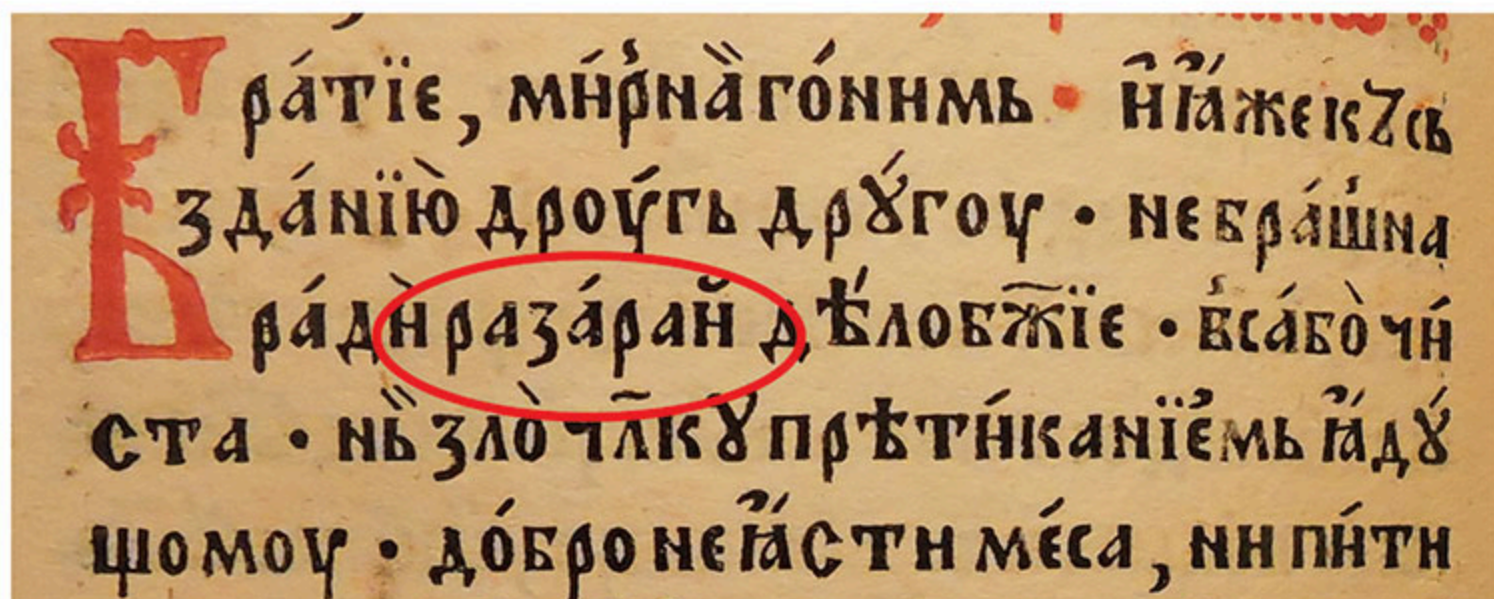 Бра́тїе, ми́рнаа̀ го́нимь • и҆ ꙗ҆́же к꙼ꙋ съ
зда́нїю̀ дроу́гь дрꙋ́гоу • не бра́шна
ра́дѝ раза́рай дѣ́ло бж҃їе • в҆са́ бо̀ чи́
ста • нь̏ зло̀ чл҃кꙋ прѣти́канїе҆мь ꙗ҆дꙋ́
щомоу • до́бро не ꙗ҆́сти ме́са, ни пи́ти